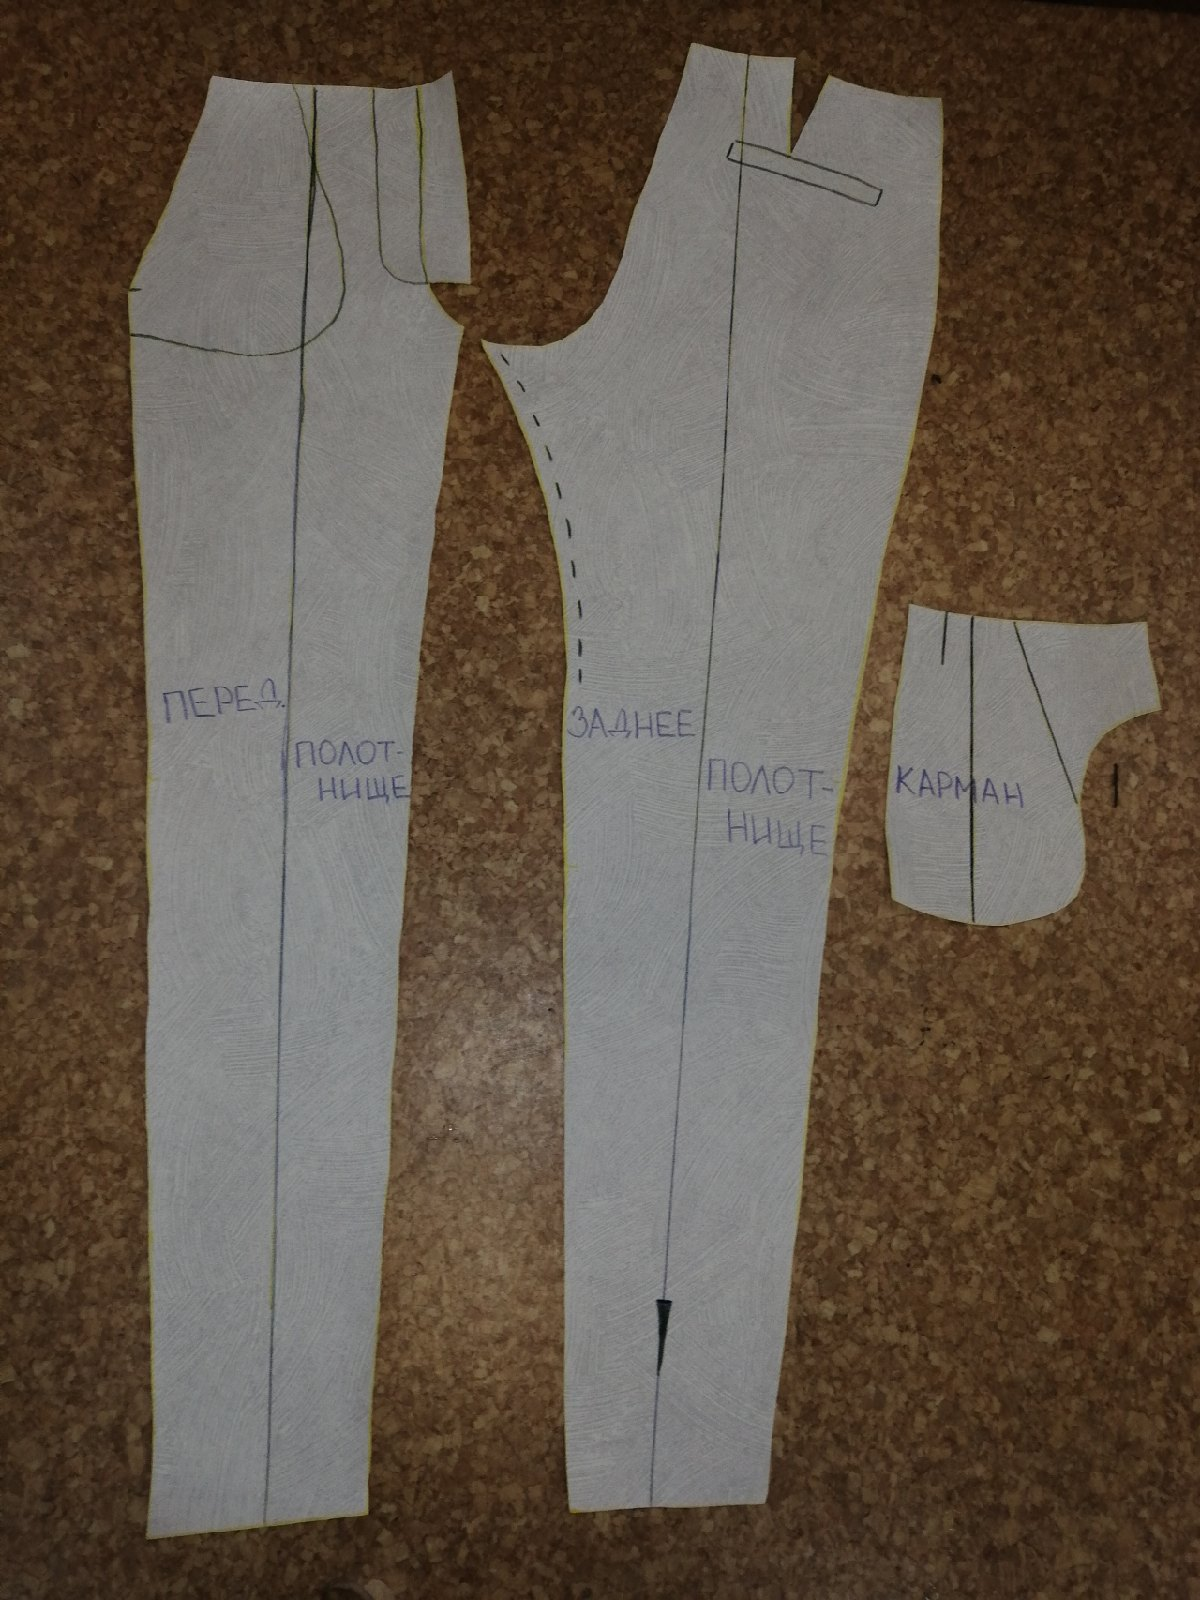 ПЕРЕД.
ПОЛОТ-
НИЩЕ
ЗАДНЕЕ
ПОЛОТ-
НИЩЕ
КАРМАН